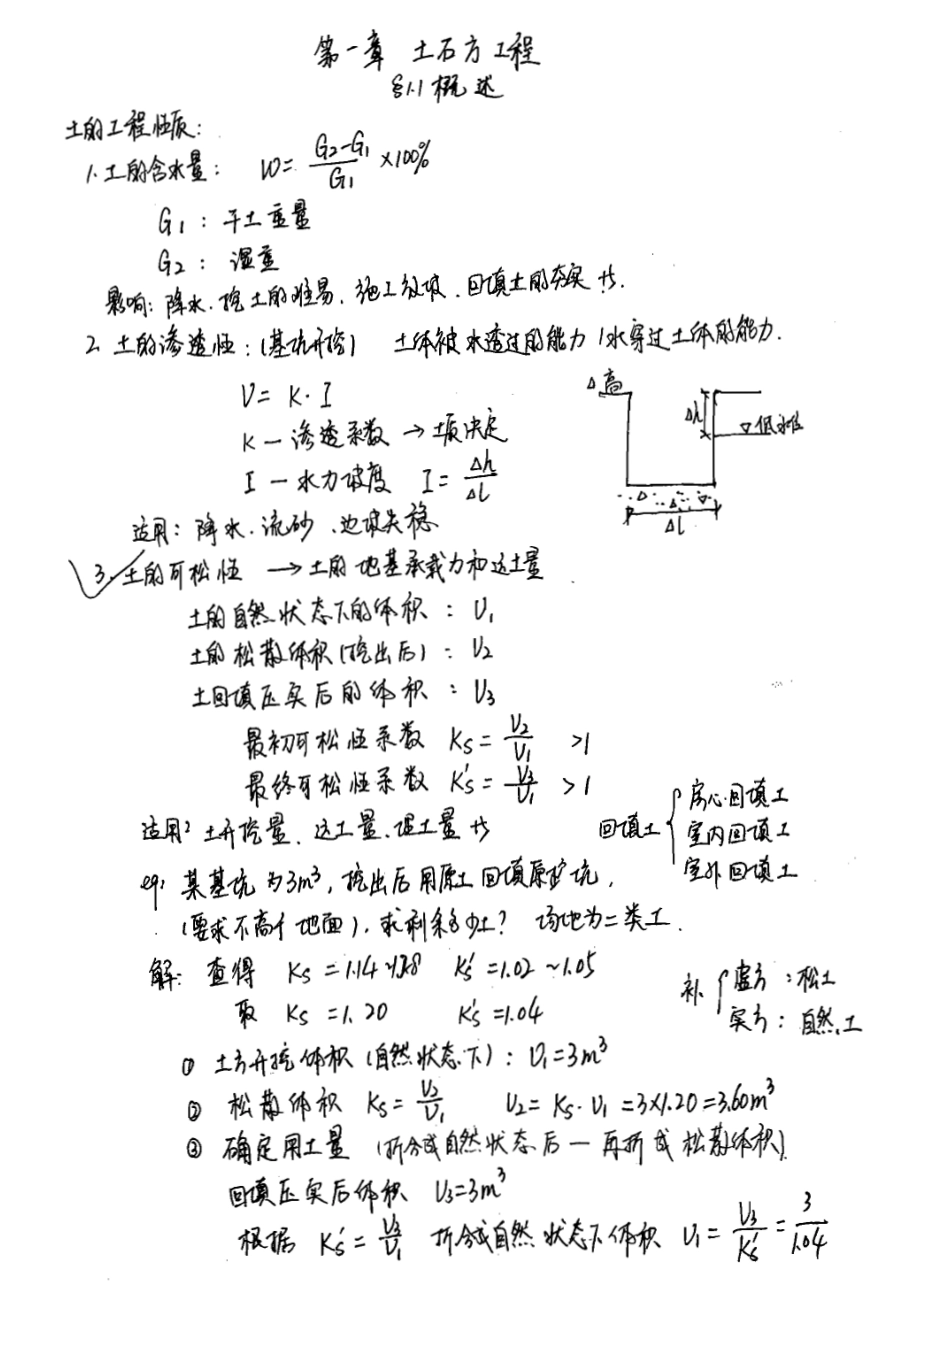 第一章 土石方工程
§1.1 概述
土的工程性质:
1. 土的含水量: W= (G2-G1)/G1 ×100%
G1: 干土重量
G2: 湿重
影响: 降水、挖土的难易、施工放坡、回填土的夯实 等.
2. 土的渗透性: (基坑开挖) 土体被水透过的能力 / 水穿过土体的能力.
V= K·I
K — 渗透系数 → 土质决定
I — 水力坡度 I= Δh/Δl
高
Δh
Δl
适用: 降水、流砂、边坡失稳
3. 土的可松性 → 土的地基承载力和运土量
土的自然状态下的体积: V1
土的松散体积(挖出后): V2
土回填压实后的体积: V3
最初可松性系数 Ks= V2/V1 >1
最终可松性系数 Ks'= V3/V1 >1
适用: 土开挖量、运土量、埋土量 等
回填土 { 房心回填土
室内回填土
室外回填土
eg: 某基坑为3m³, 挖出后用原土回填原矿坑,
(要求不高于地面), 求剩余多少土? 场地为二类土.
解: 查得 Ks =1.14~1.28 Ks'=1.02~1.05
取 Ks =1.20 Ks'=1.04
补 { 虚方: 松土
实方: 自然土
① 土方开挖体积 (自然状态下): V1=3m³
② 松散体积 Ks= V2/V1 V2= Ks·V1 =3×1.20=3.60m³
③ 确定用土量 (折合成自然状态后 — 再折成松散体积)
回填压实后体积 V3=3m³
根据 Ks'= V3/V1 折合成自然状态下体积 V1= V3/Ks' = 3/1.04